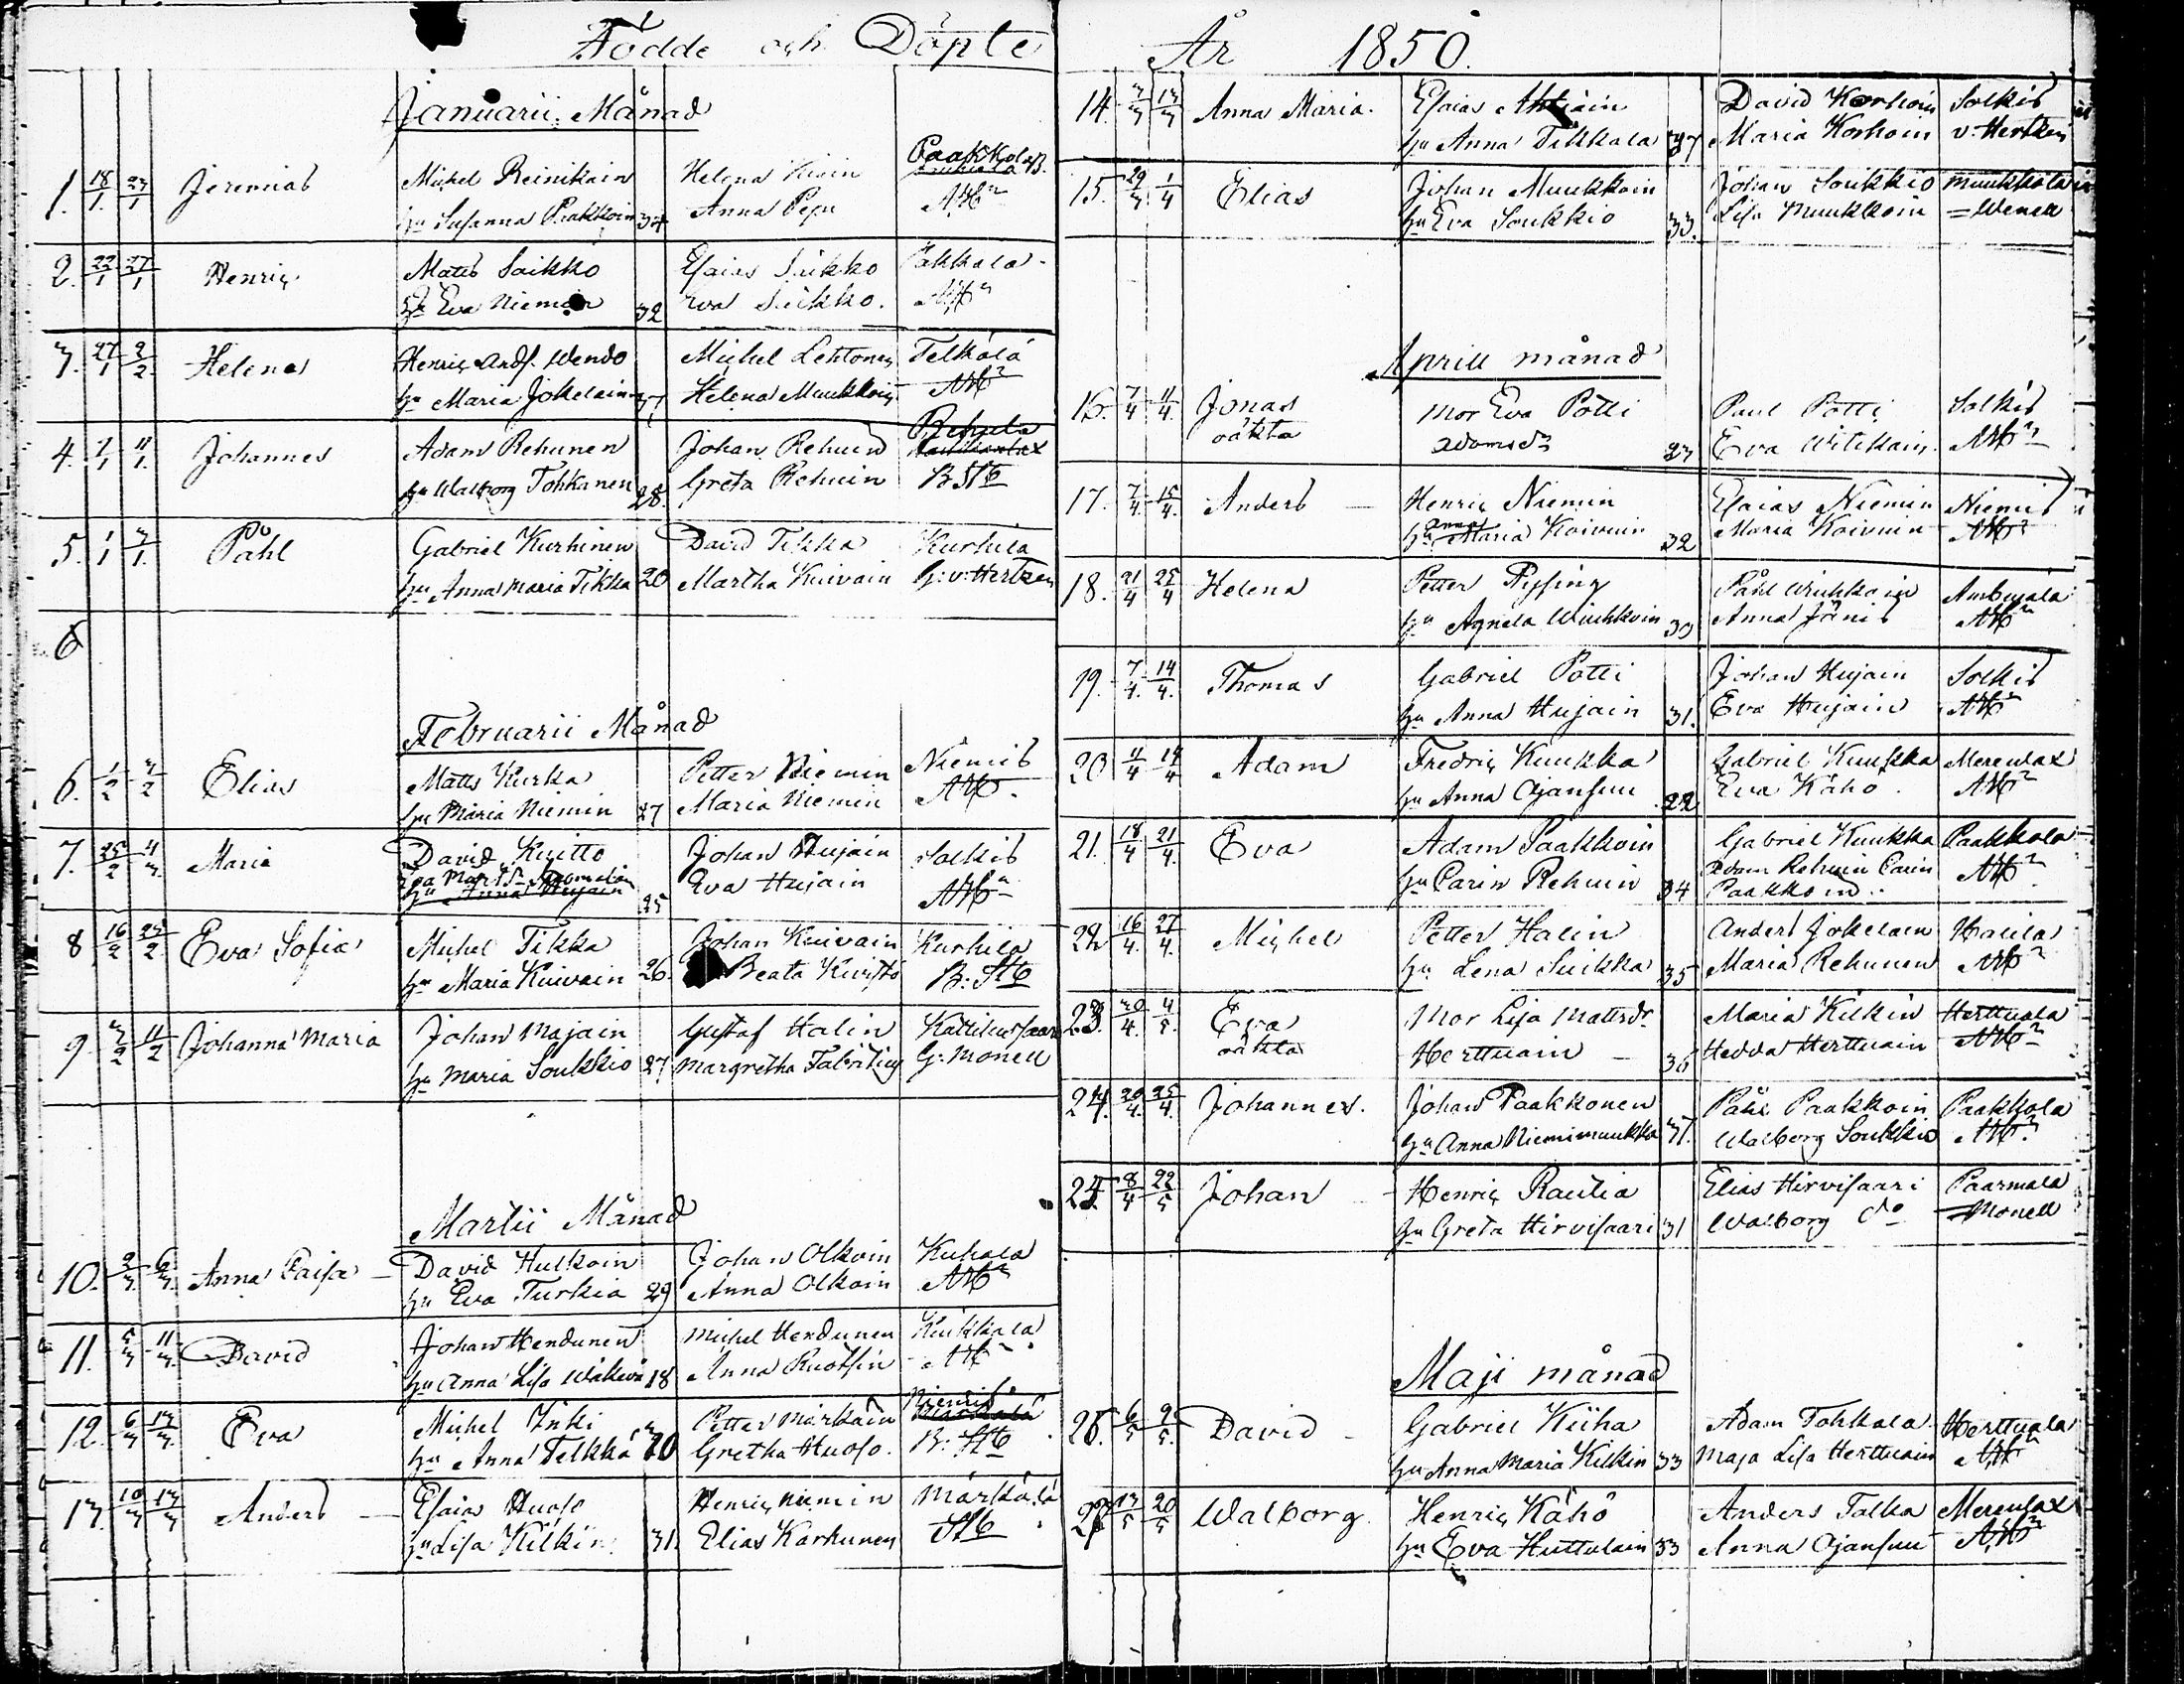 Födde och Döpte
År 1850.
Januarii Månad
1. 18/1 23/1 Jeremias Michel Reinikain Helena Anna Pepu Paakkola
hu Susanna Paakkoin 34
2. 22/1 27/1 Henric Matts Saikko Esaias Suikko Pakkala
hu Eva Niemin 32 Eva Suikko.
3. 27/1 2/2 Helena Henric Andf. Wendo Michel Lehtonen Telkälä
hu Maria Jokelain 37 Helena Muukkoin
4. 7/1 11/1. Johannes Adam Rehunen Johan Rehuin Rehula
hu Walborg Tohkanen 28. Greta Rehuin
5. 1/1 3/1. Påhl Gabriel Kurhinen David Tikka Kurhila
hu Anna Maria Tikka 20 Martha Kuivain G: v: Hertzen
6
Februarii Månad
6. 1/2 3/2 Elias Matts Kurka Petter Niemin Niemis
hu Maria Niemin 27 Maria Niemin
7. 25/2 4/3 Maria David Kuitto Johan Hujain Solkis
hu Anna Hujain 25 Eva Hujain
8 16/2 23/2 Eva Sofia Michel Tikka Johan Kuivain Kurhila
hu Maria Kuivain 26. Beata Kuisto
9. 3/2 11/2 Johanna Maria Johan Majain Gustaf Halin
hu Maria Soukkio 27 Margretha Fabritius G: Monell
Martii Månad
10. 2/3. 6/3. Anna Caisa David Hulkoin Johan Olkoin Kuhala
hu Eva Turkia 29 Anna Olkoin
11. 5/3 11/3. David Johan Hendunen Michel Hendunen Kuikkala
hu Anna Lisa 18 Anna Ruotsin
12. 6/3 13/3. Eva Michel Inki Petter Märkäin Niemis
hu Anna Telkkä 20 Gretha Huoso.
13. 10/3 13/3 Anders Esaias Huoso Henric Niemin Märkälä
hu Lisa Kilkin 31. Elias Karhunen
14. 7/3 13/3 Anna Maria. Esaias Ahtiain David Korhoin Solkis
hu Anna Tikkala 37 Maria Korhoin v: Hertzen
15. 29/3 1/4 Elias Johan Muukkoin Johan Soukkio Muukkola
hu Eva Soukkio 33. Lisa Muukkoin = Wenell
Aprill månad
16. 7/4 11/4. Jonas Mor Eva Potti Paul Potti Solkis
oäkta Adamsdr 23 Eva Witikain.
17. 7/4. 15/4. Anders Henric Niemin Esaias Niemin Niemis
Anna
hu Maria Koivuin 32 Maria Koivuin
18. 21/4 25/4 Helena Petter Ryssing Påhl Wiukkoin
hu Agneta Wiukkoin 30 Anna Jänis
19. 7/4. 14/4. Thomas Gabriel Potti Johan Hujain Solkis
hu Anna Hujain 31. Eva Hujain
20 4/4 14/4 Adam Fredric Kuukka Gabriel Kuukka Merenlax
hu Anna Ojansuu 22 Eva Kähö.
21. 18/4 21/4. Eva Adam Paakkoin Gabriel Kuukka Paakkola
hu Carin Rehuin 34 Adam Rehuin Carin
Paakkoin
22 16/4. 27/4. Michel Petter Halin Anders Jokelain Halila
hu Lena Suikka 35 Maria Rehunen
23. 30/4. 4/5. Eva Mor Lisa Mattsdr. Maria Kilkin Herttuala
oäkta Herttuain 36 Hedda Herttuain
24. 20/4. 25/4. Johannes. Johan Paakkonen Påhl Paakkoin Paakkola
hu Anna Niemimuukko 37. Walborg Soukkio
25 8/4 22/5 Johan Henric Rautia Elias Hirvisaari Paarmala
hu Greta Hirvisaari 31 Walborg do Monell
Maji månad
26. 6/5 9/5. David Gabriel Kiiha Adam Tohkala Herttuala
hu Anna Maria Kilkin 33 Maja Lisa Herttuain
27 13/5 20/5 Walborg. Henric Kähö Anders Talka Merenlax
hu Eva Huttulain 33 Anna Ojansuu